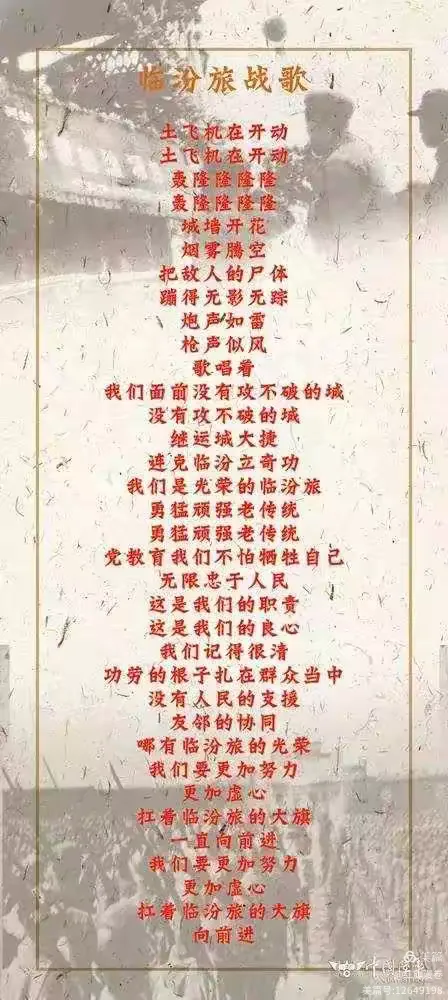 临汾旅战歌
土飞机在开动
土飞机在开动
轰隆隆隆隆
轰隆隆隆隆
城墙开花
烟雾腾空
把敌人的尸体
蹦得无影无踪
炮声如雷
枪声似风
歌唱着
我们面前没有攻不破的城
没有攻不破的城
继运城大捷
连克临汾立奇功
我们是光荣的临汾旅
勇猛顽强老传统
勇猛顽强老传统
党教育我们不怕牺牲自己
无限忠于人民
这是我们的职责
这是我们的良心
我们记得很清
功劳的根子扎在群众当中
没有人民的支援
友邻的协同
哪有临汾旅的光荣
我们要更加努力
更加虚心
扛着临汾旅的大旗
一直向前进
我们要更加努力
更加虚心
扛着临汾旅的大旗
向前进
美篇号:12649198